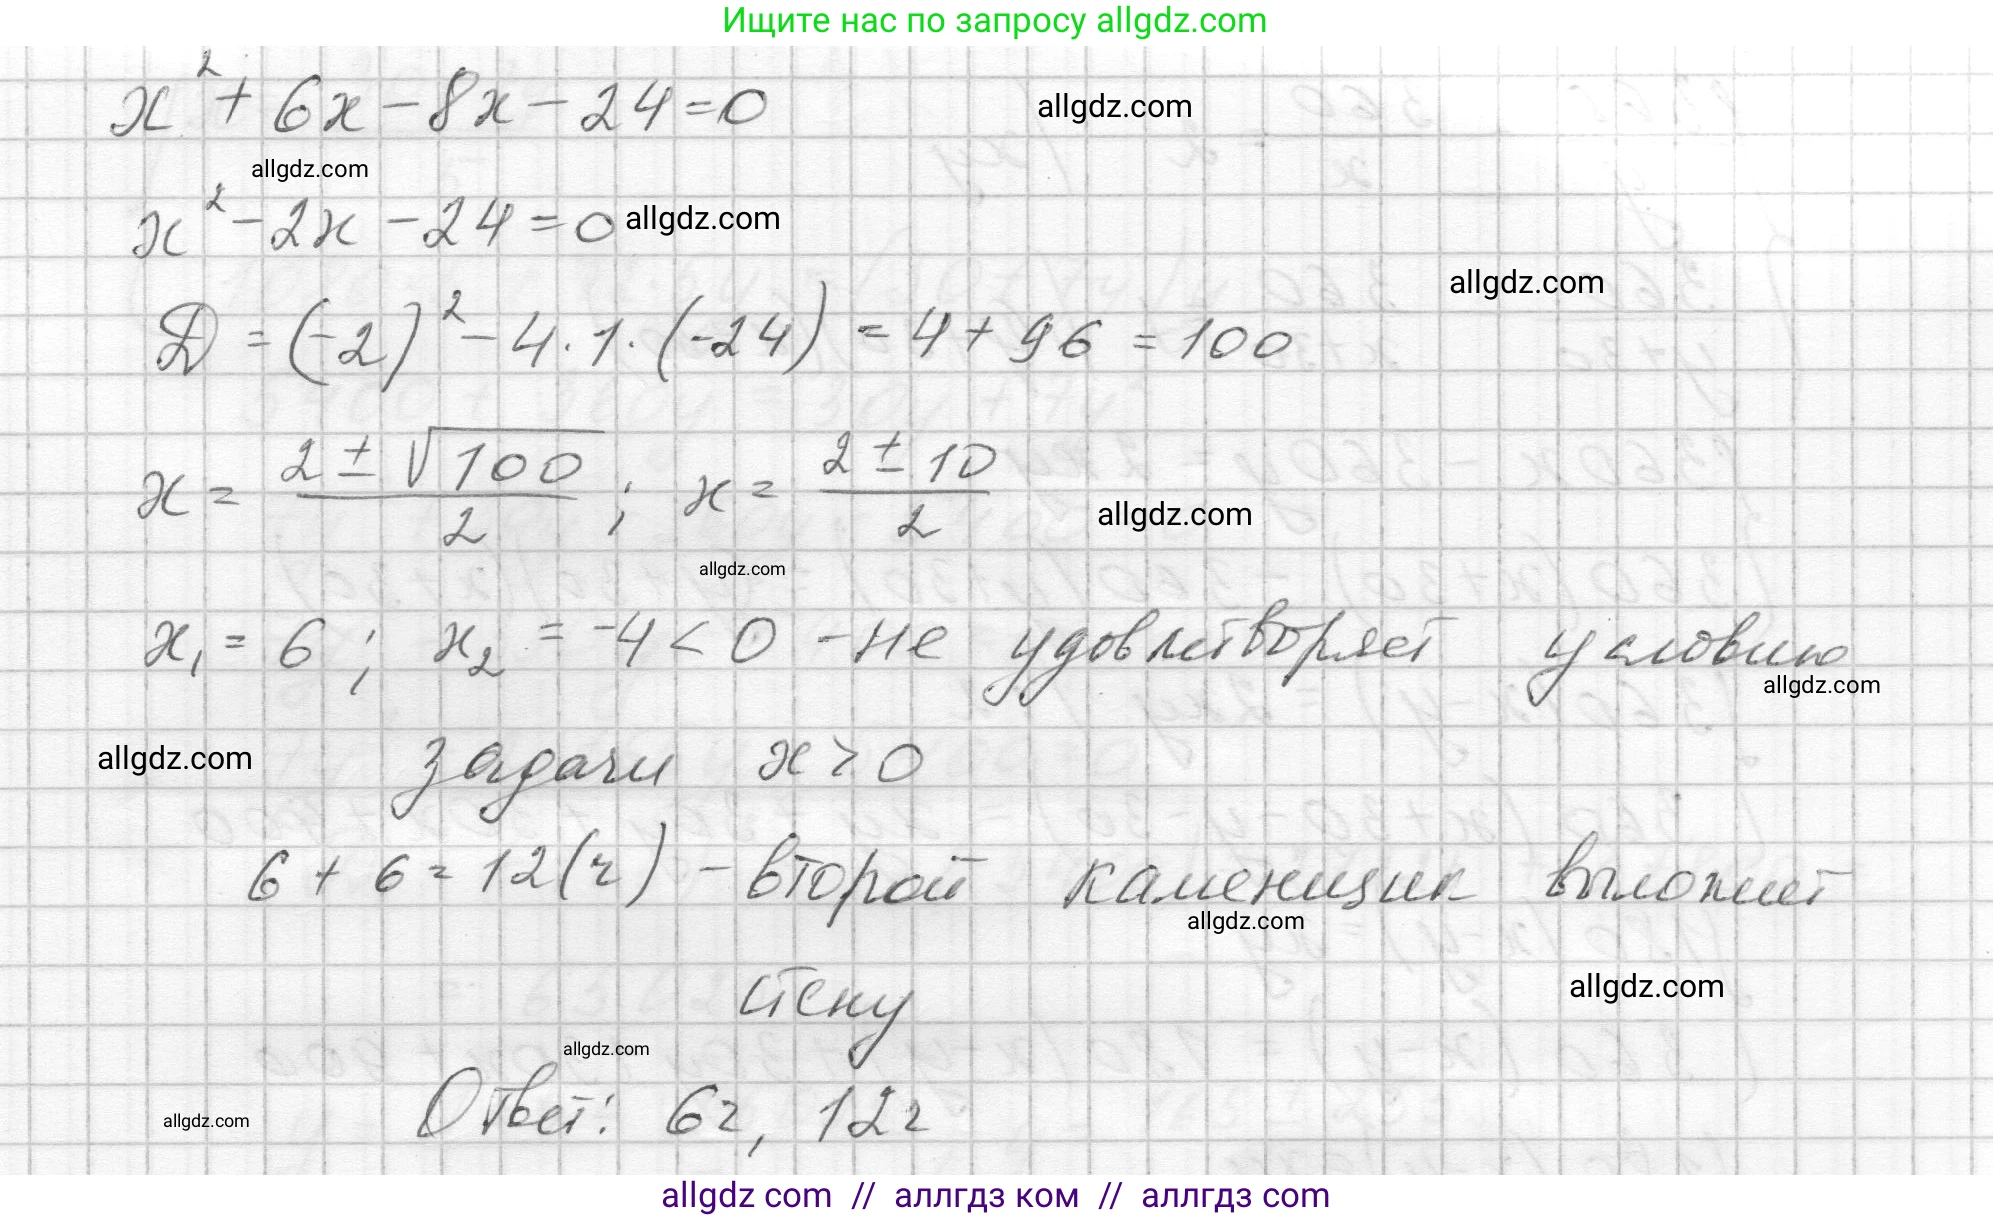 Ищите нас по запросу allgdz.com
x² + 6x - 8x - 24 = 0
allgdz.com
allgdz.com
x² - 2x - 24 = 0
allgdz.com
allgdz.com
D = (-2)² - 4 · 1 · (-24) = 4 + 96 = 100
x = (2 ± √100)/2 ; x = (2 ± 10)/2
allgdz.com
allgdz.com
x₁ = 6 ; x₂ = -4 < 0 - не удовлетворяет условию
allgdz.com
allgdz.com
задачи x > 0
6 + 6 = 12 (ч) - второй каменщик выложит
allgdz.com
стену
allgdz.com
allgdz.com
Ответ: 6ч, 12ч
allgdz.com
allgdz com // аллгдз ком // аллгдз com